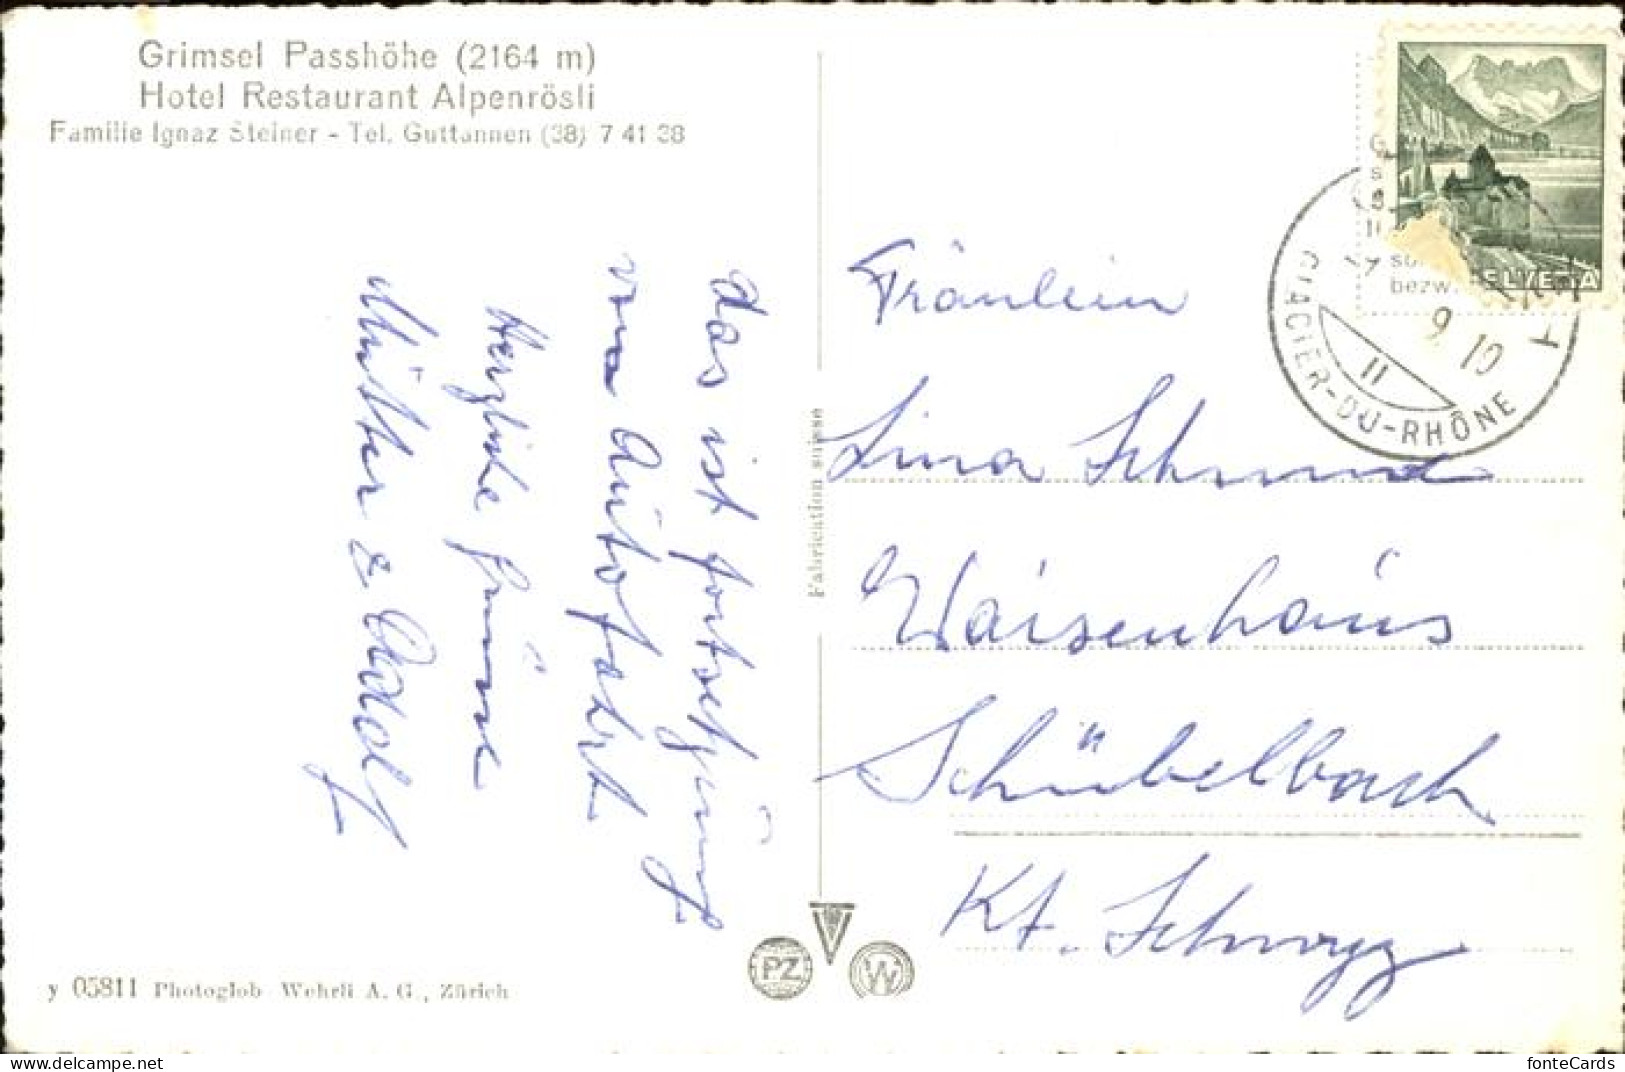 Grimsel Passhöhe (2164 m)
Hotel Restaurant Alpenrösli
Familie Ignaz Steiner - Tel. Guttannen (38) 7 41 38
das ist fortsetzung
von Autofahrt
Herzliche grüsse
Mutter & Adolf
Fräulein
Lina Schmid
Waisenhaus
Schübelbach
Kt. Schwyz
Fabrication suisse
HELVETIA
bezw.
GLACIER-DU-RHÔNE
9 10
II
PZ
W
y 05811 Photoglob-Wehrli A. G., Zürich
www.delcampe.net
fonteCards